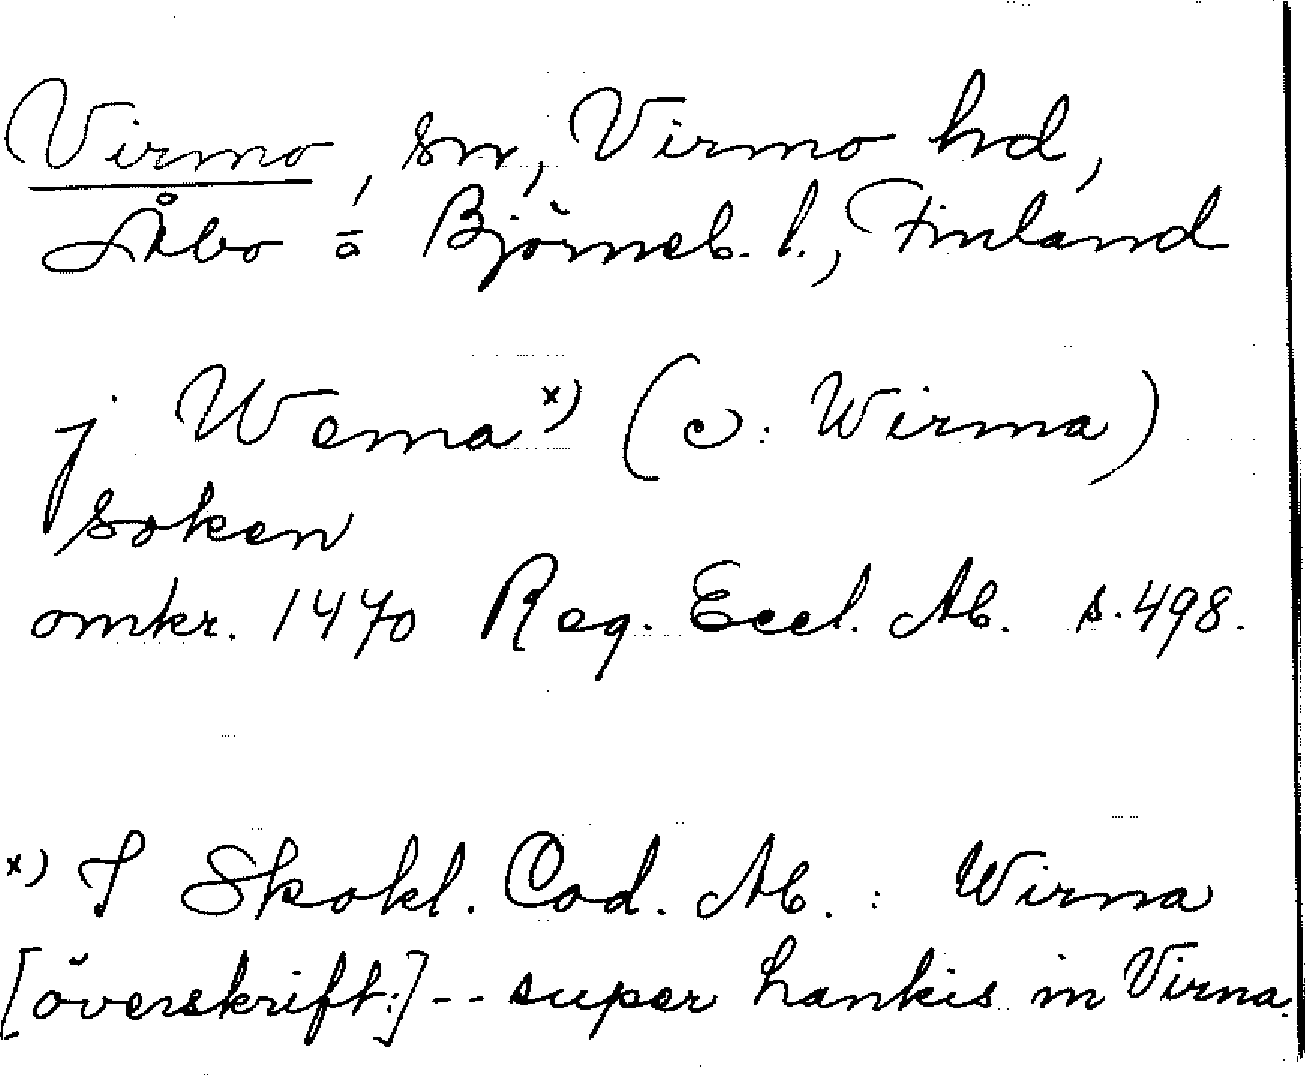 Virmo, sn, Virmo hd,
Åbo o Björneb. l., Finland
j Werna x) (ɔ: Wirma)
soken
omkr. 1470 Reg. Eccl. Ab. s. 498.
x) I Skokl. Cod. Ab. : Wirna
[överskrift:] -- super hankis in Virna.